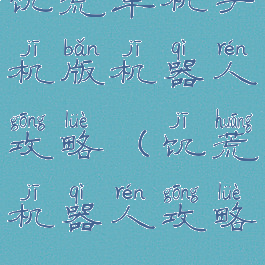 饥荒单机手
jī bǎn jī qì rén
机版机器人
gōng lüè jī huāng
攻略（饥荒
jī qì rén gōng lüè
机器人攻略